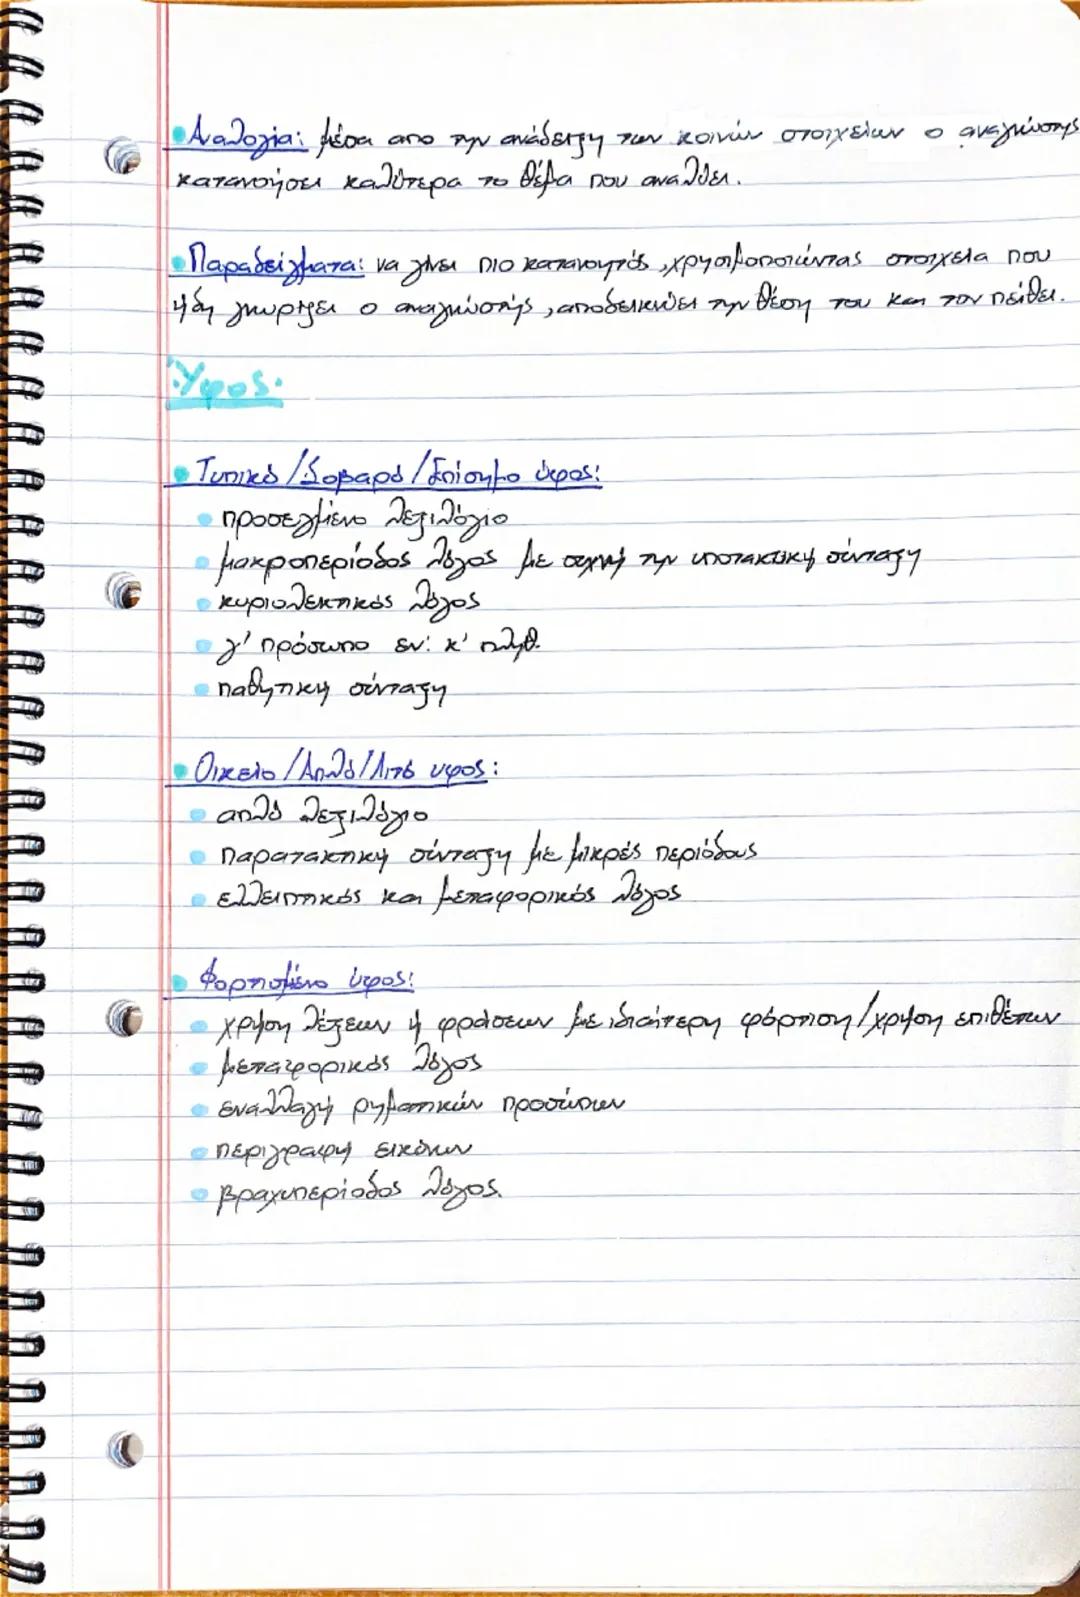 Αναλογία: μέσα απο την ανάδειξη των κοινών στοιχείων ο αναγνώστης
κατανοήσει καλύτερα το θέμα που αναλύει.
Παραδείγματα: να γίνει πιο κατανοητός, χρησιμοποιώντας στοιχεία που
ήδη γνωρίζει ο αναγνώστης, αποδεικνύει την θέση του και τον πείθει.
Ύφος:
Τυπικό/Σοβαρό/Επίσημο ύφος:
προσεγμένο λεξιλόγιο
μακροπερίοδος λόγος με συχνή την υποτακτική σύνταξη
κυριολεκτικός λόγος
γ' πρόσωπο εν: κ' πληθ.
παθητική σύνταξη
Οικείο/Απλό/Λιτό υφος:
απλό λεξιλόγιο
παρατακτική σύνταξη με μικρές περιόδους
ελλειπτικός και μεταφορικός λόγος
Φορτισμένο ύφος:
χρήση λέξεων ή φράσεων με ιδιαίτερη φόρτιση/χρήση επιθέτων
μεταφορικός λόγος
εναλλαγή ρηματικών προσώπων
περιγραφή εικόνων
βραχυπερίοδος λόγος.